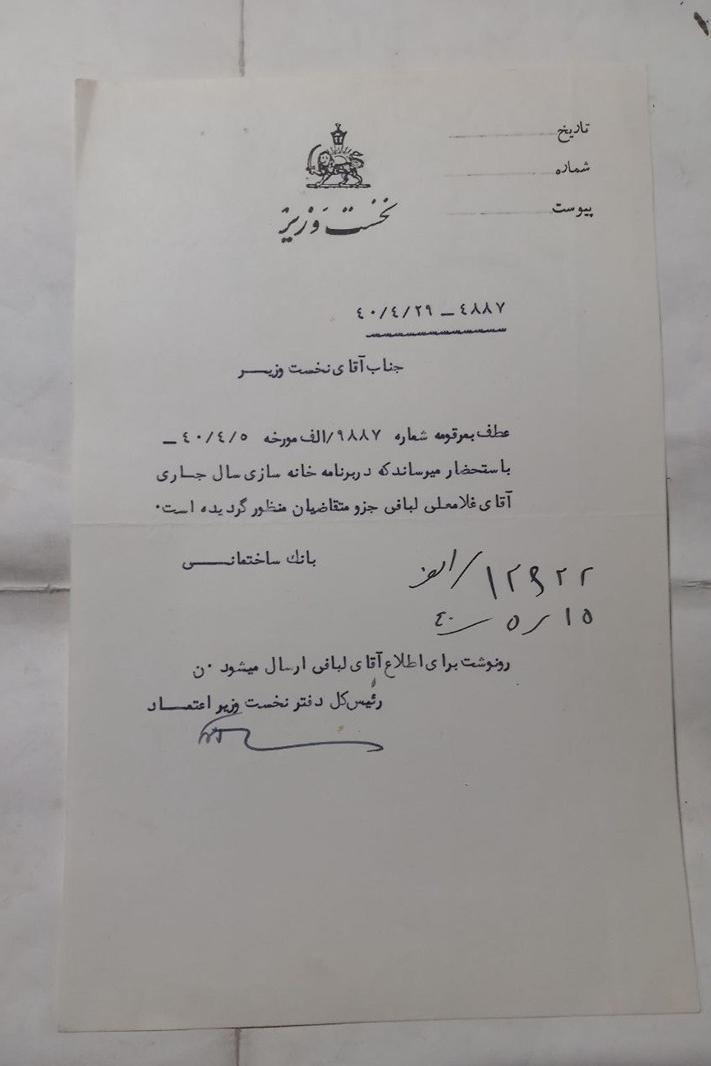 تاریخ
شماره
پیوست
نخست وزیر
٤٨٨٧ – ٤٠/٤/٢٩
جناب آقای نخست وزیــر
عطف بمرقومه شماره ٩٨٨٧/الف مورخه ٤٠/٤/٥ –
باستحضار میرساند که در برنامه خانه سازی سال جـاری
آقای غلامعلی لبافی جزو متقاضیان منظور گردیده است٠
بانك ساختمانـــی
١٢٩٢٢/الف
٤٠/٥/١٥
رونوشت برای اطلاع آقای لبافی ارسال میشود ٠ن
رئیس کل دفتر نخست وزیر اعتمــاد